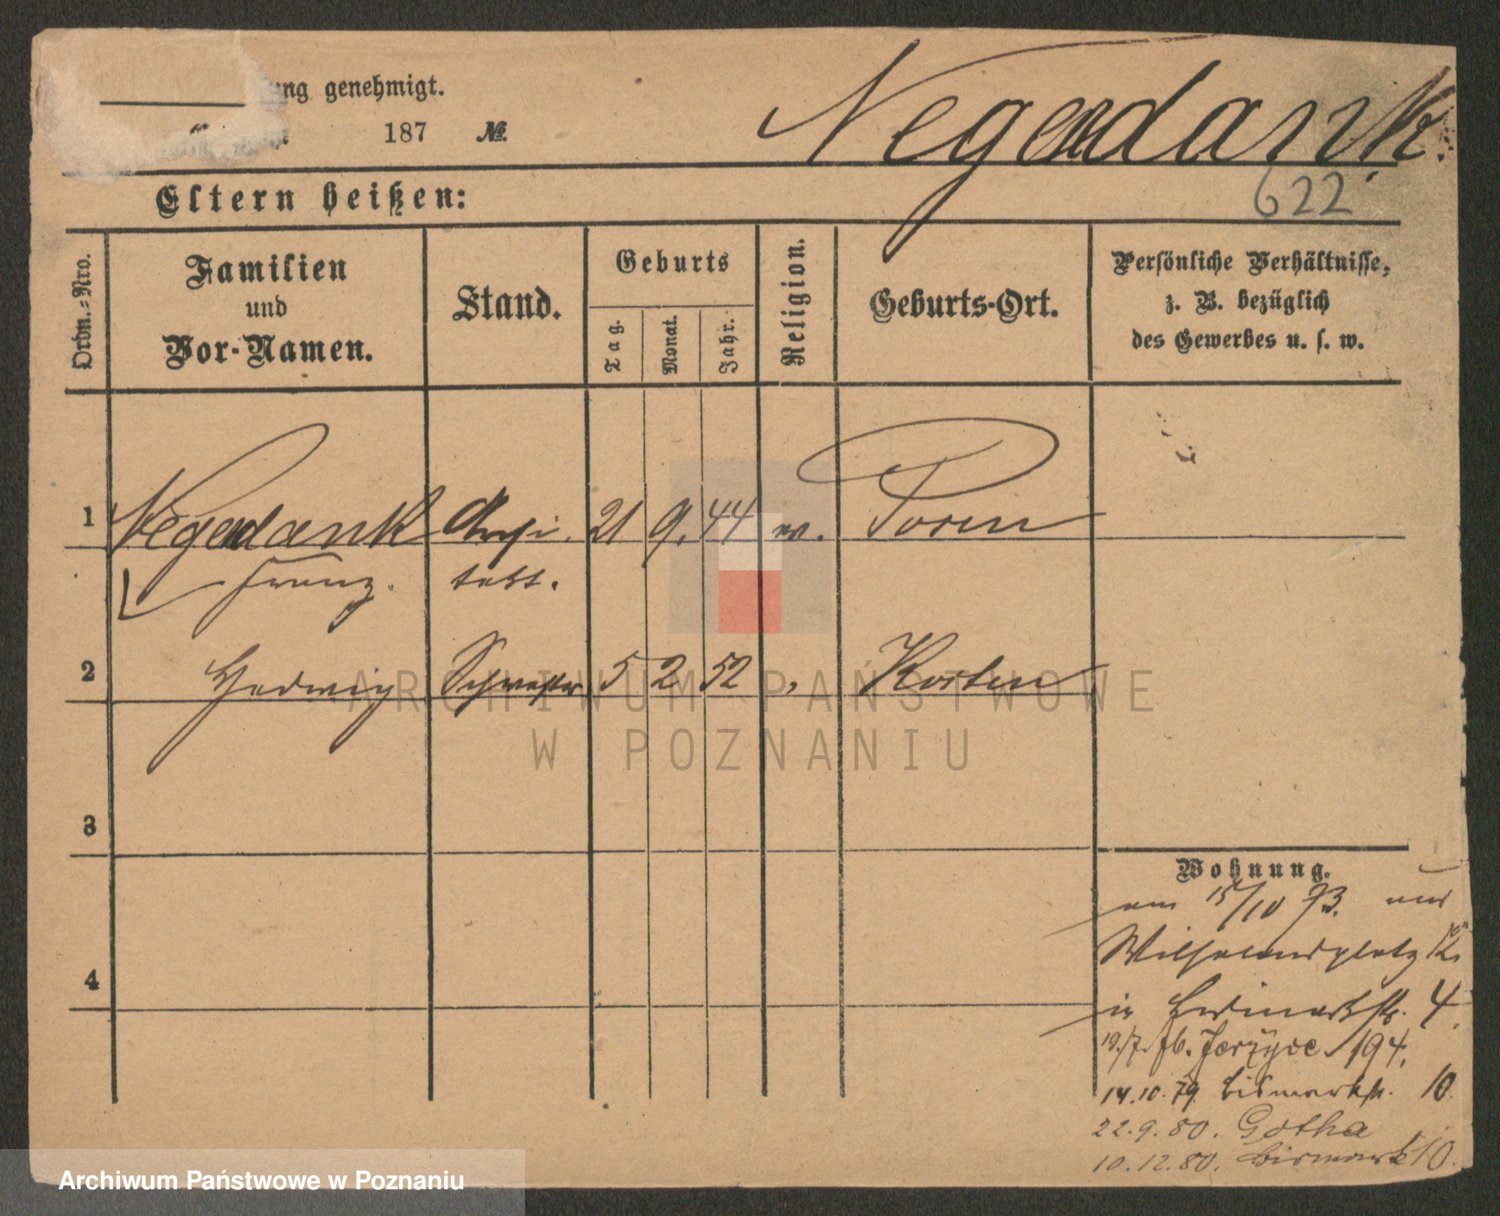 ung genehmigt.
187 №
Negendank.
622
Eltern heißen:
Ordn.=Nro.
Familien
und
Vor-Namen.
Stand.
Geburts
Tag.
Monat.
Jahr.
Religion.
Geburts-Ort.
Persönliche Verhältnisse,
z. B. bezüglich
des Gewerbes u. s. w.
1 Negendank Archi 21 9. 44 ev. Posen
Franz. tekt.
2 Hedwig Schwester 5 2 52 Kosten
3
4
Wohnung.
am 15/10 73. aus
Wilhelmsplatz 12.
in Bismarkstr. 4.
19./7. 76. Jerzyce 194.
14.10.79 Bismarkstr. 10.
22.9.80. Gotha
10.12.80. Bismark 10.
ARCHIWUM PAŃSTWOWE
W POZNANIU
Archiwum Państwowe w Poznaniu